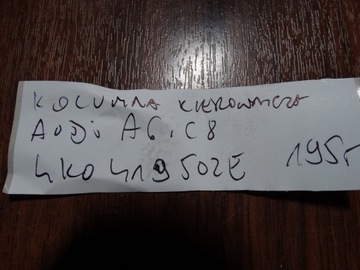 KOLUMNA KIEROWNICZA
AUDI A6.C8
4K0419502E 195r